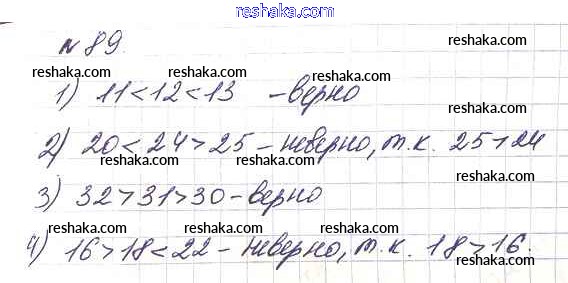 reshaka.com
№ 89.
reshaka.com reshaka.com reshaka.com
1) 11 < 12 < 13 - верно
reshaka.com reshaka.com reshaka.com
2) 20 < 24 > 25 - неверно, т.к. 25 > 24
reshaka.com reshaka.com reshaka.com
3) 32 > 31 > 30 - верно
reshaka.com reshaka.com reshaka.com
4) 16 > 18 < 22 - неверно, т.к. 18 > 16.
reshaka.com reshaka.com reshaka.com